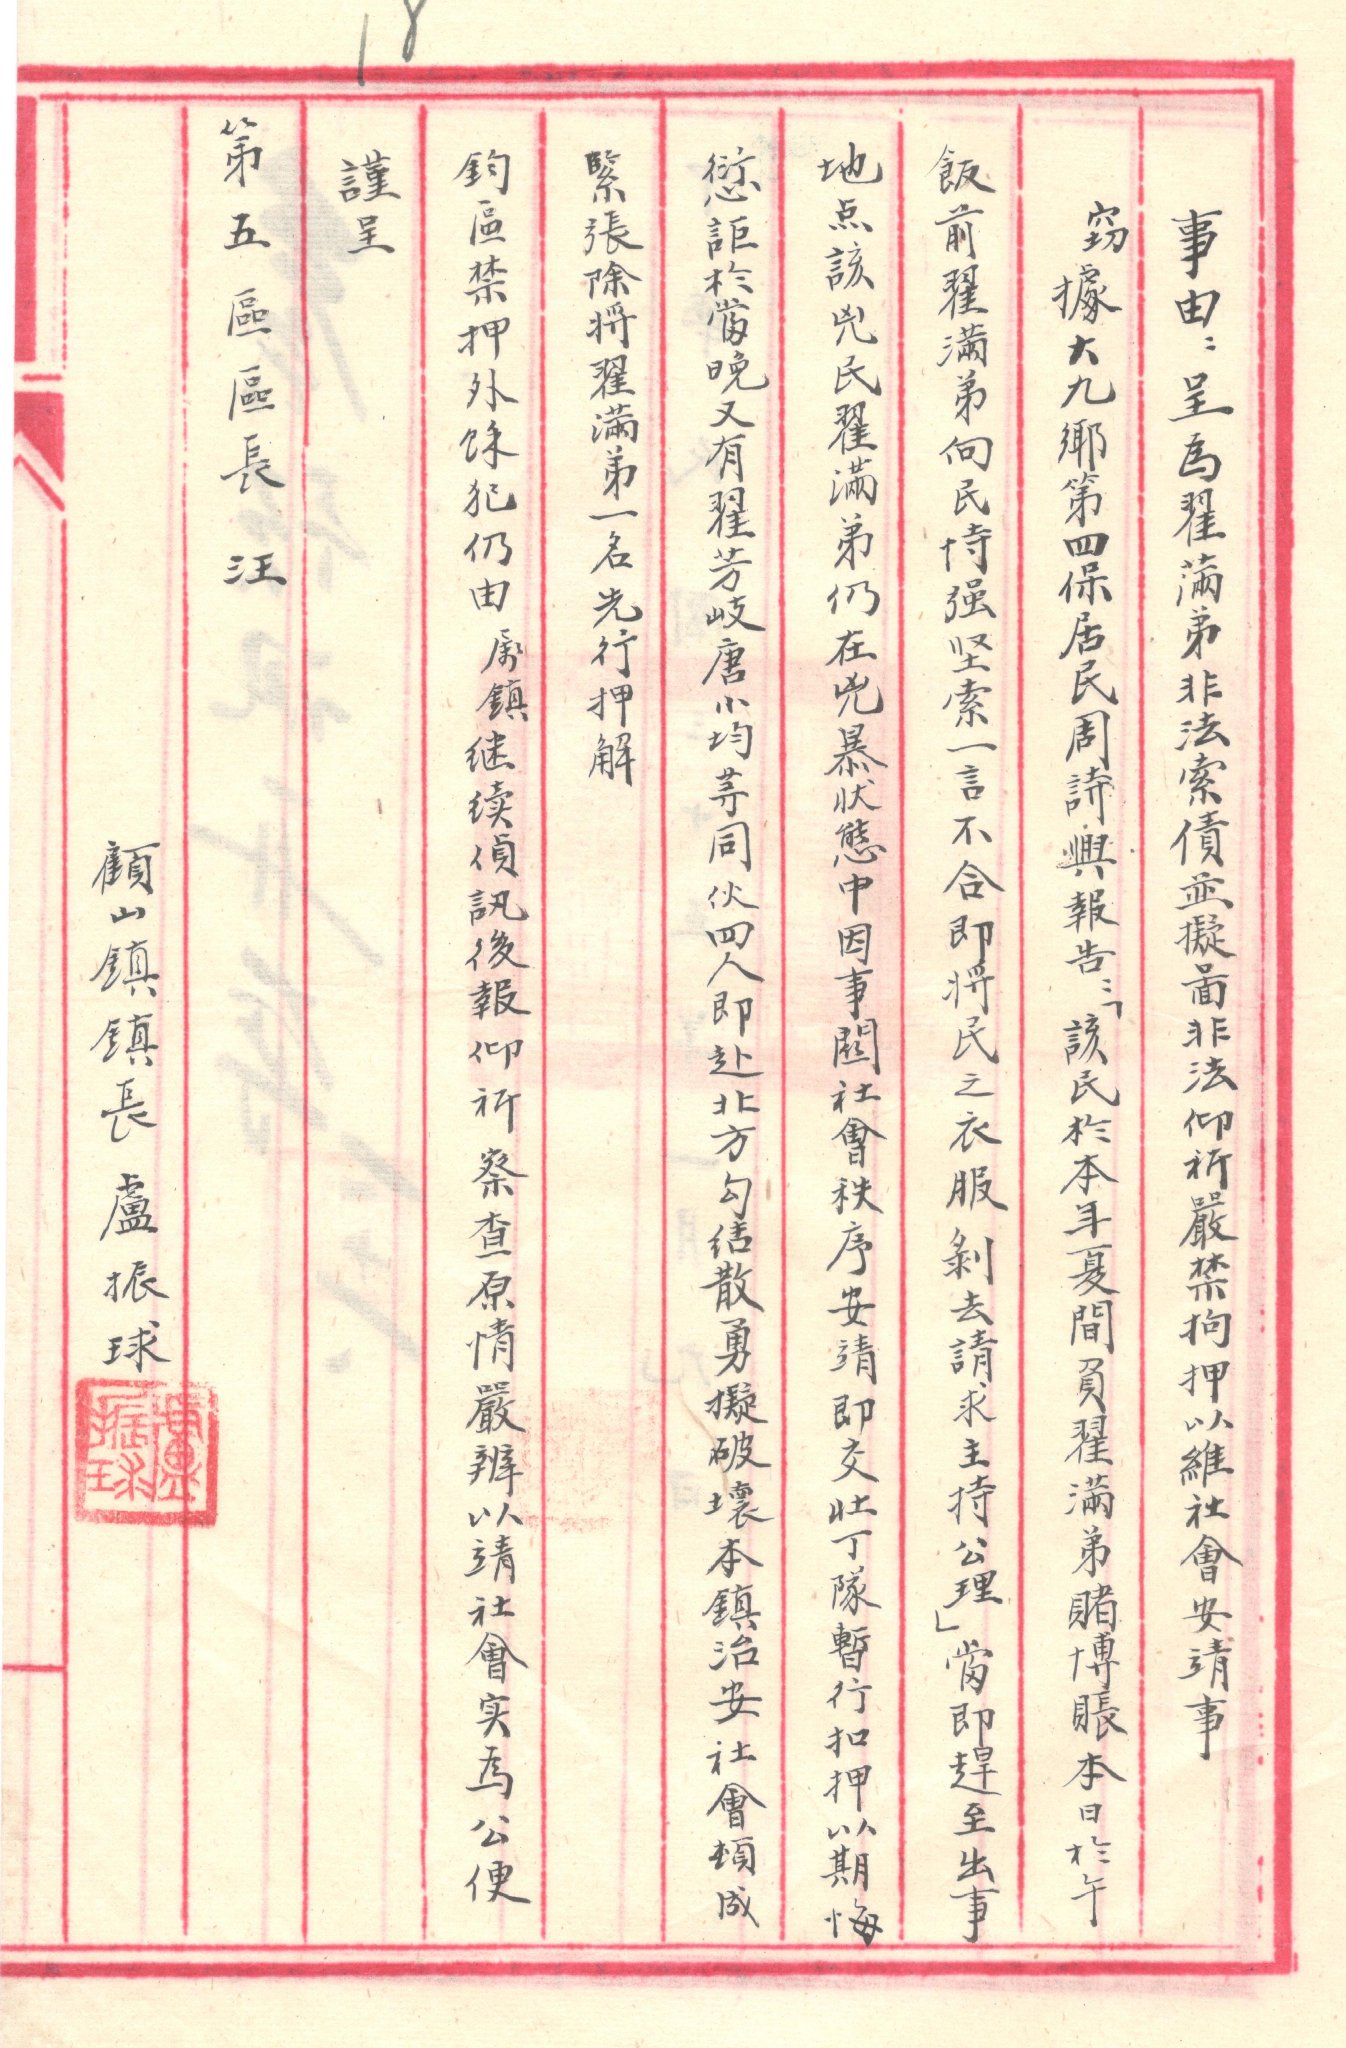 18
事由：呈為翟滿弟非法索債並擬啚非法仰祈嚴禁拘押以維社會安靖事
窃據大九鄉第四保居民周詩興報告：「該民於本年夏間負翟滿弟賭博賬本日於午
飯前翟滿弟向民恃强坚索一言不合即将民之衣服剝去請求主持公理」當即趕至出事
地点該兇民翟滿弟仍在兇暴状態中因事關社會秩序安靖即交壯丁隊暫行扣押以期悔
愆詎於當晚又有翟芳岐唐小均等同伙四人即赴北方勾结散勇擬破壞本鎮治安社會頓成
緊張除将翟滿弟一名先行押解
鈞區禁押外餘犯仍由属鎮继续偵訊後報仰祈察查原情嚴辦以靖社會实為公便
謹呈
第五區區長汪
顧山鎮鎮長盧振球